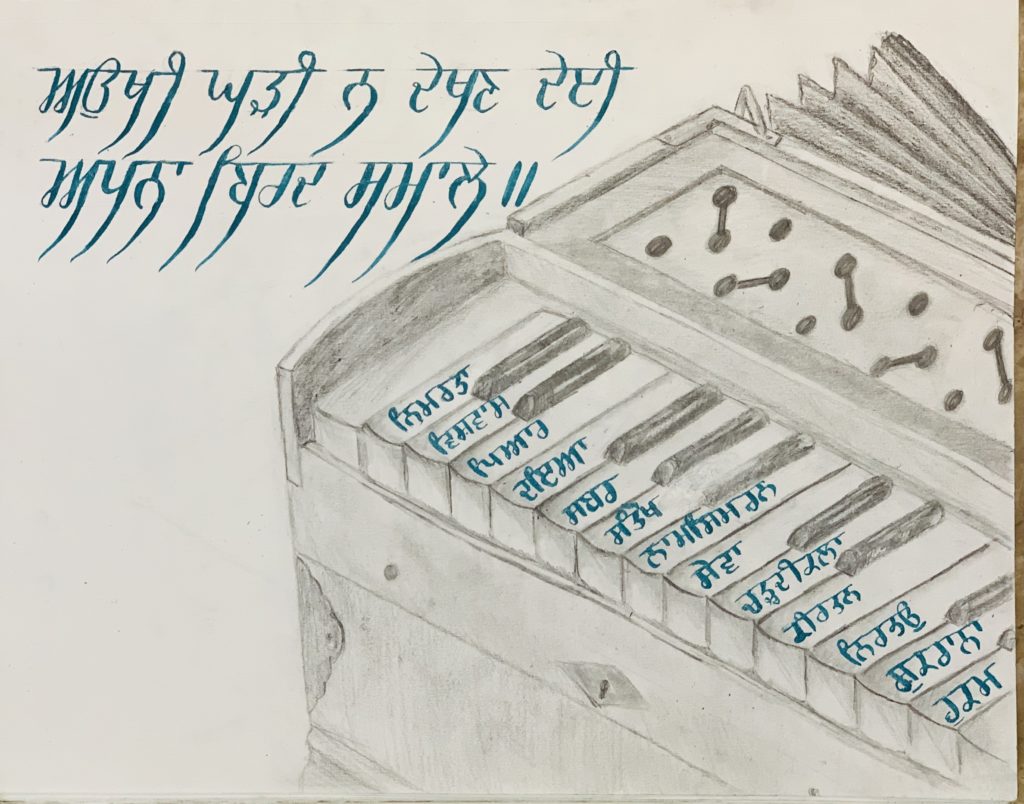 ਅਉਖੀ ਘੜੀ ਨ ਦੇਖਣ ਦੇਈ
ਅਪਨਾ ਬਿਰਦ ਸਮਾਲੇ॥
ਨਿਮਰਤਾ
ਵਿਸ਼ਵਾਸ
ਪਿਆਰ
ਦਇਆ
ਸਬਰ
ਸੰਤੋਖ
ਨਾਮ ਸਿਮਰਨ
ਸੇਵਾ
ਚੜ੍ਹਦੀਕਲਾ
ਕੀਰਤਨ
ਨਿਰਭਉ
ਸ਼ੁਕਰਾਨਾ
ਹੁਕਮ